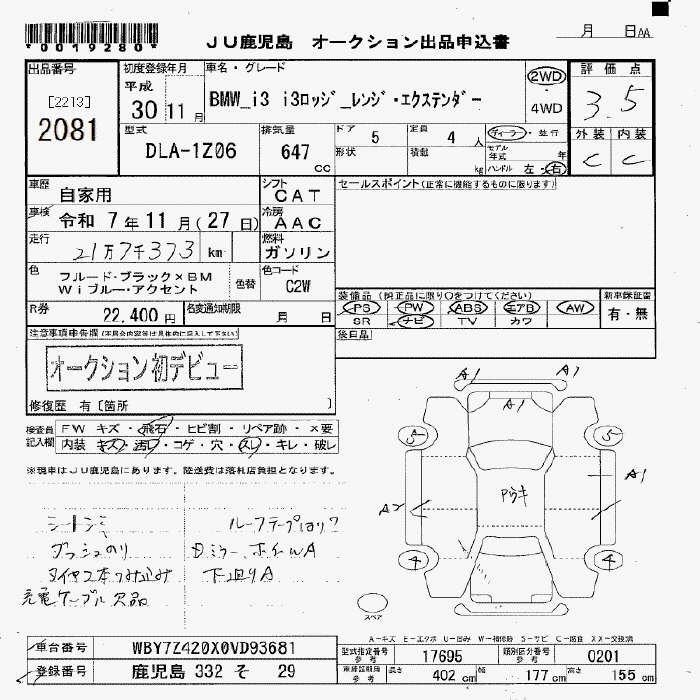 *0019280*
JU鹿児島 オークション出品申込書
月 日AA
出品番号
[2213]
2081
初度登録年月
平成
30 11 月
車名・グレード
BMW_i3 i3ロッジ_レンジ・エクステンダー
2WD
・
4WD
評価点
3.5
型式
DLA-1Z06
排気量
647
cc
ドア 5
形状
定員 4 人
積載 kg
ディーラー・並行
モデル年式 年
ハンドル 左・右
外装 内装
C C
車歴
自家用
シフト
CAT
セールスポイント(正常に機能するものに限ります)
車検
令和 7年11月(27日)
冷房
AAC
走行
21万7千373 km
燃料
ガソリン
色
フルード・ブラック×BM
Wiブルー・アクセント
色替
色コード
C2W
R券
22,400円
名変通知期限
月 日
装備品(純正品に限り○をつけてください)
PS PW ABS エアB AW
SR ナビ TV カワ
新車保証書
有・無
後日品
注意事項申告欄
オークション初デビュー
修復歴 有〔箇所 〕
検査員記入欄
FW キズ・飛石・ヒビ割・リペア跡・×要
内装 キズ・汚れ・コゲ・穴・スレ・キレ・破レ
※現車はJU鹿児島にあります。陸送費は落札店負担となります。
A1 A1
A1
5 5
A1
A2
Pウキ
4 4
スペア
シートシミ
ダッシュのり
タイヤ2本つみ込み
充電ケーブル欠品
ルーフテープはリワ
ミラー、ホイルA
下回りA
A-キズ E-エクボ U-凹み W-補修跡 S-サビ C-腐食 XX-交換済
車台番号 WBY7Z420X0VD93681
登録番号 鹿児島 332 そ 29
型式指定番号 参考 17695
類別区分番号 参考 0201
車検証記載 参考 長さ 402 cm 幅 177 cm 高さ 155 cm